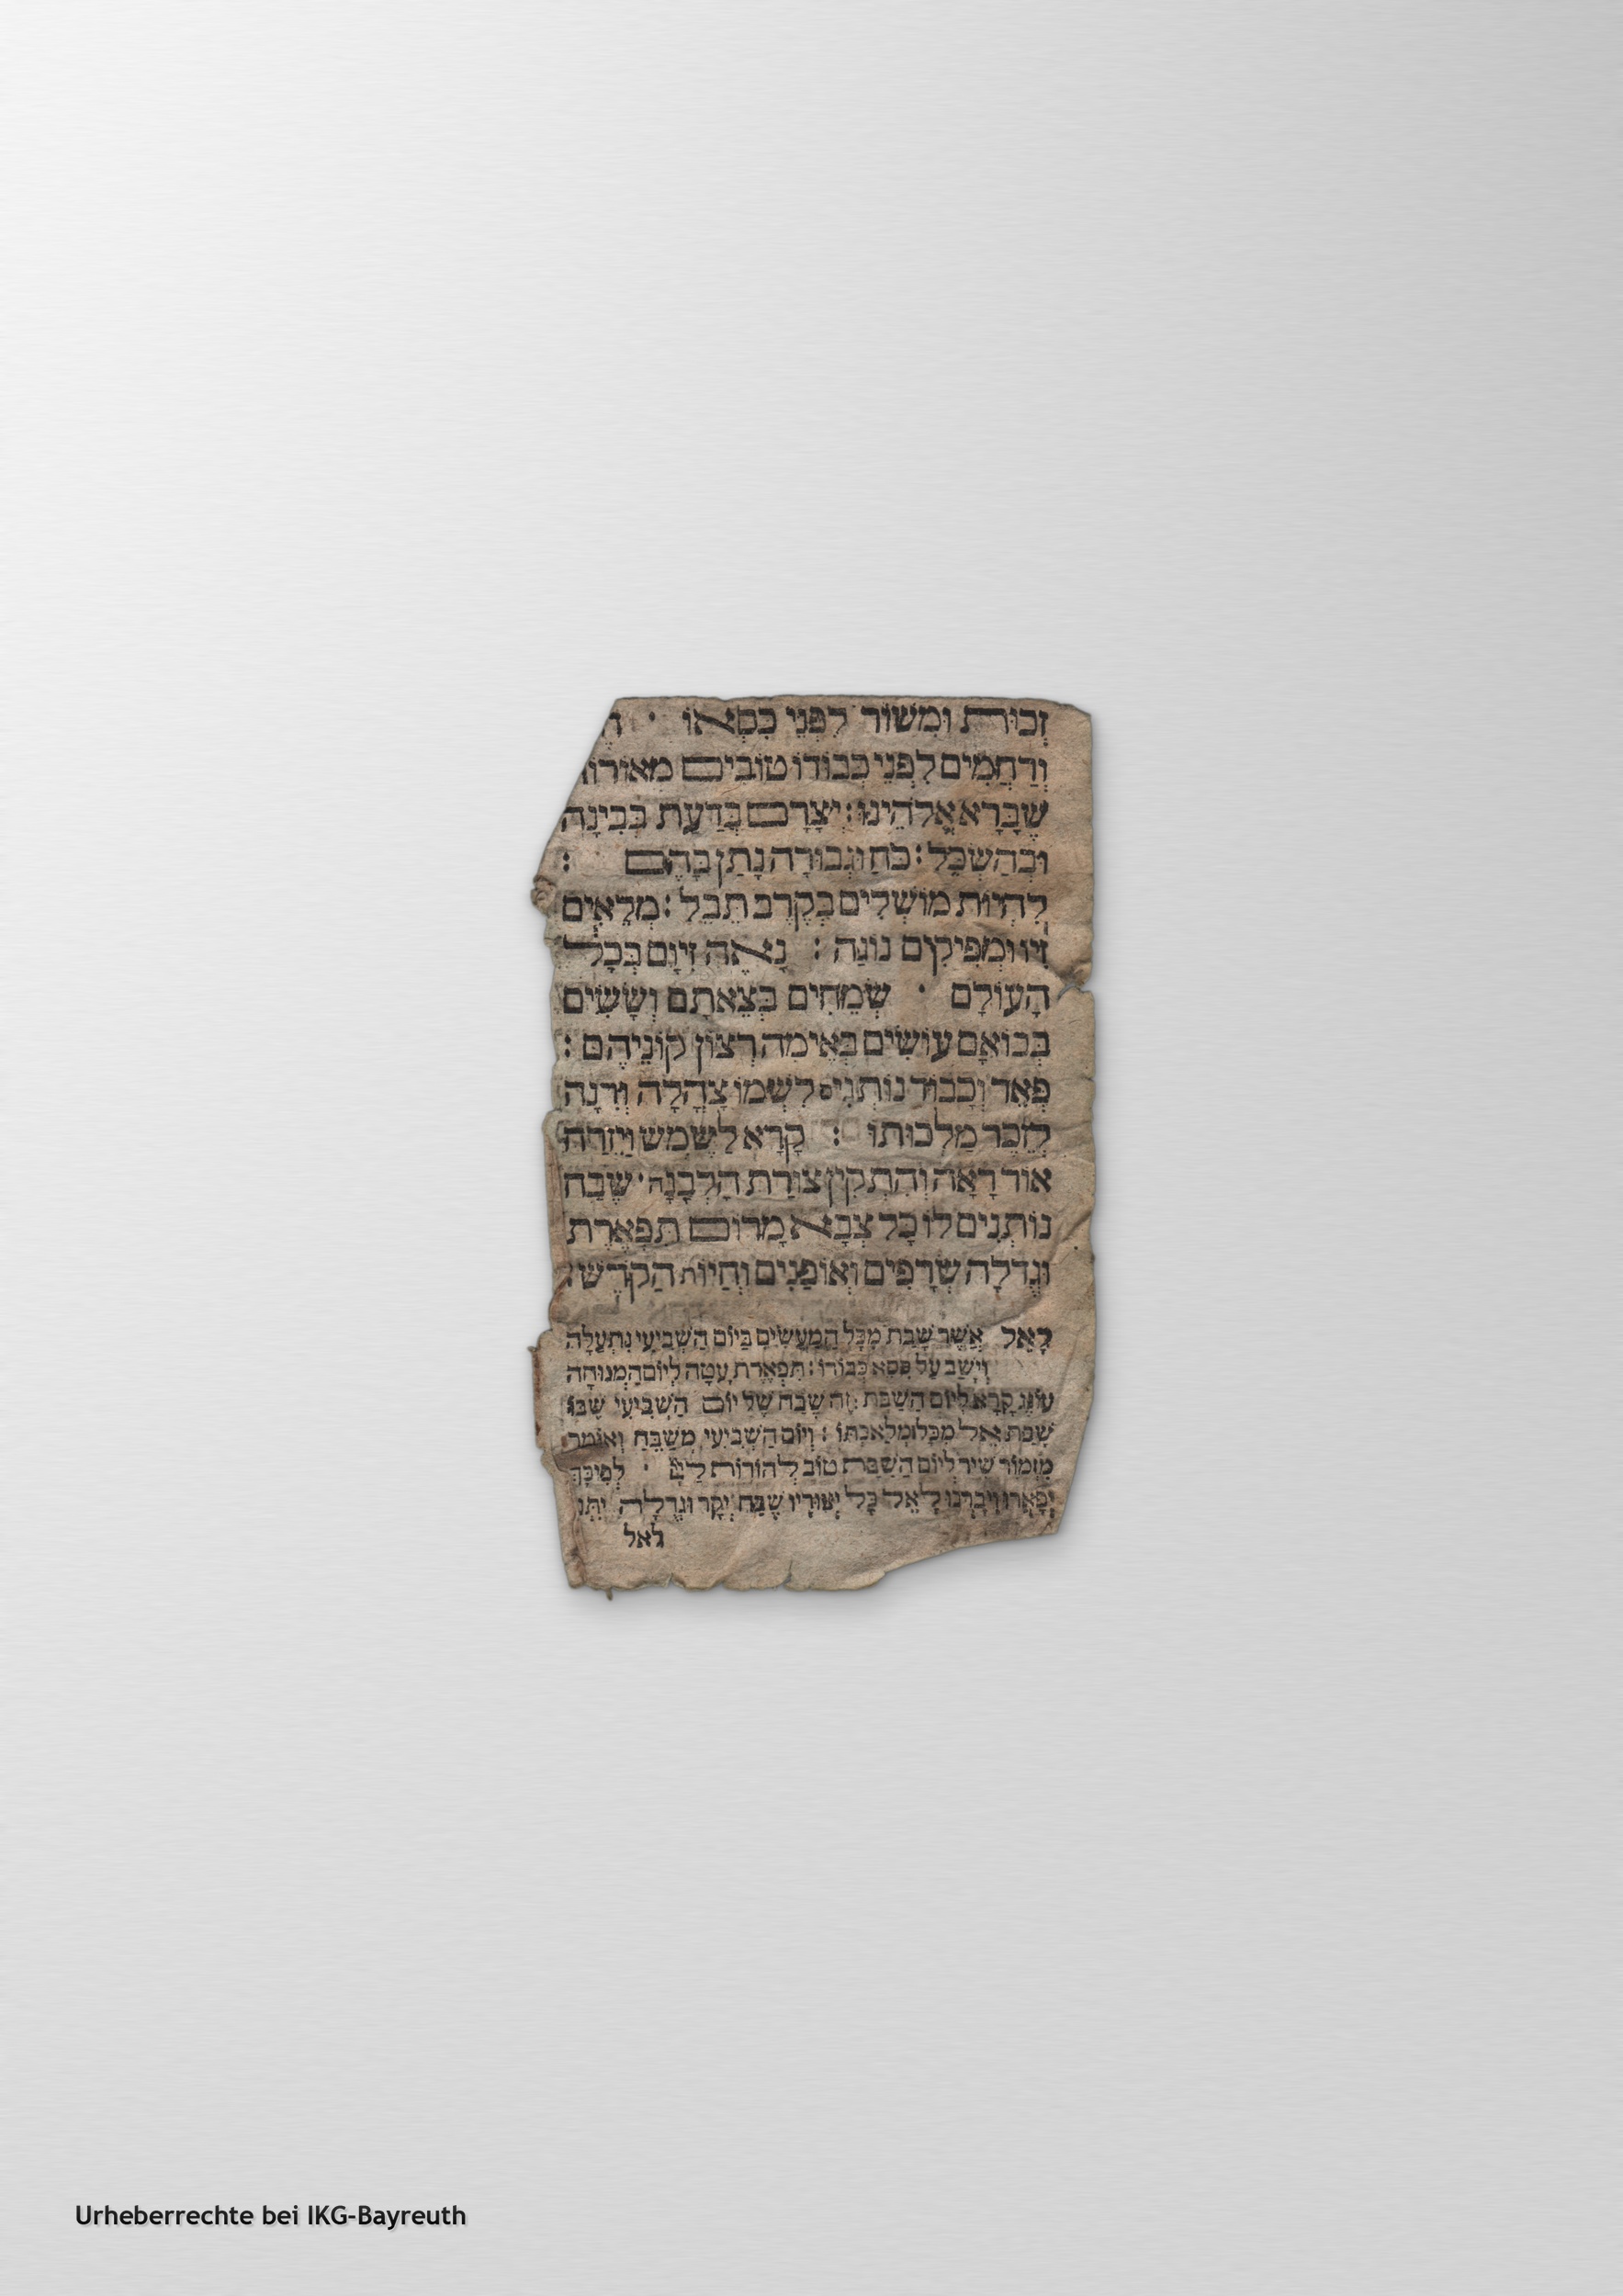 זְכוּת וּמִשׁוֹר לִפְנֵי כִסְאוֹ · חֶ
וְרַחֲמִים לִפְנֵי כְבוֹדוֹ טוֹבִים מְאוֹרוֹ
שֶׁבָּרָא אֱלֹהֵינוּ : יְצָרָם בְּדַעַת בְּבִינָה
וּבְהַשְׂכֵּל : כֹּחַ וּגְבוּרָה נָתַן בָּהֶם :
לִהְיוֹת מוֹשְׁלִים בְּקֶרֶב תֵּבֵל : מְלֵאִים
זִיו וּמְפִיקִים נוֹגַהּ : נָאֶה זִיוָם בְּכָל
הָעוֹלָם · שְׂמֵחִים בְּצֵאתָם וְשָׂשִׂים
בְּבוֹאָם עוֹשִׂים בְּאֵימָה רְצוֹן קוֹנֵיהֶם :
פְּאֵר וְכָבוֹד נוֹתְנִים לִשְׁמוֹ צָהֳלָה וְרִנָּה
לְזֵכֶר מַלְכוּתוֹ : קָרָא לַשֶּׁמֶשׁ וַיִּזְרַח
אוֹר רָאָה וְהִתְקִין צוּרַת הַלְּבָנָה · שֶׁבַח
נוֹתְנִים לוֹ כָּל צְבָא מָרוֹם תִּפְאֶרֶת
וּגְדֻלָּה שְׂרָפִים וְאוֹפַנִּים וְחַיּוֹת הַקֹּדֶשׁ :
לָאֵל אֲשֶׁר שָׁבַת מִכָּל הַמַּעֲשִׂים בַּיּוֹם הַשְּׁבִיעִי נִתְעַלָּה
וְיָשַׁב עַל כִּסֵּא כְּבוֹדוֹ : תִּפְאֶרֶת עָטָה לְיוֹם הַמְּנוּחָה
עוֹנֶג קָרָא לְיוֹם הַשַּׁבָּת : זֶה שֶׁבַח שֶׁל יוֹם הַשְּׁבִיעִי שֶׁבּוֹ
שָׁבַת אֵל מִכָּל מְלַאכְתּוֹ : וְיוֹם הַשְּׁבִיעִי מְשַׁבֵּחַ וְאוֹמֵר
מִזְמוֹר שִׁיר לְיוֹם הַשַּׁבָּת טוֹב לְהוֹדוֹת לַייָ · לְפִיכָךְ
יְפָאֲרוּ וִיבָרְכוּ לָאֵל כָּל יְצוּרָיו שֶׁבַח יְקָר וּגְדֻלָּה יִתְּנוּ
לאל
Urheberrechte bei IKG-Bayreuth